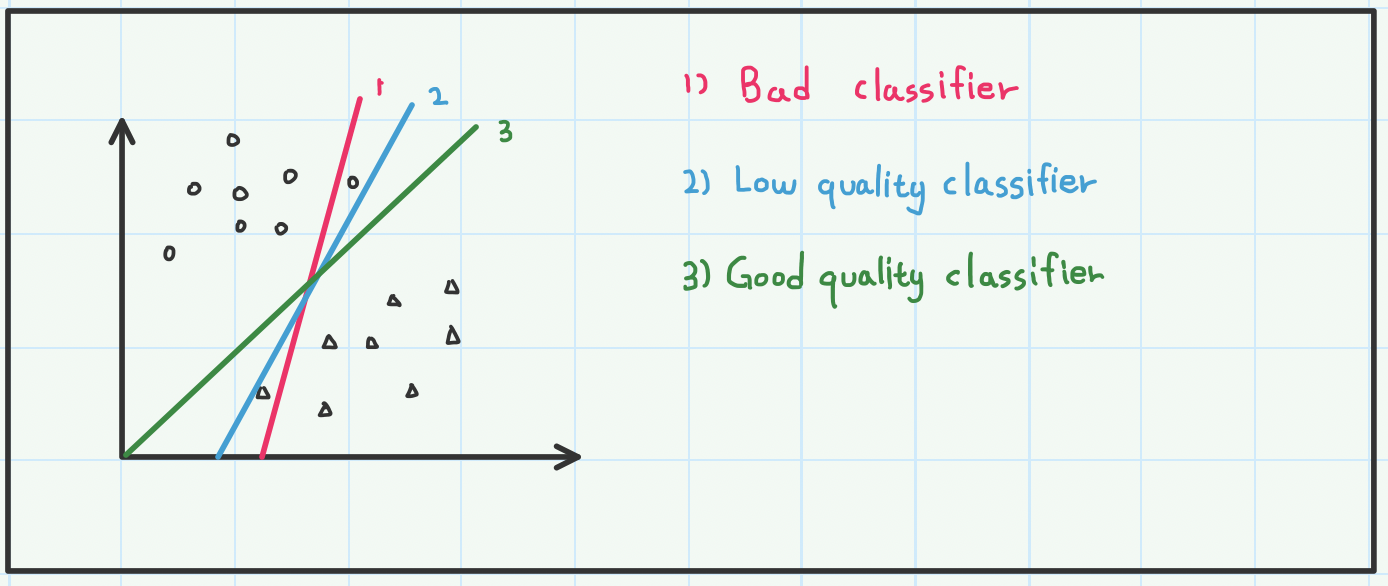 1
2
3
1) Bad classifier
2) Low quality classifier
3) Good quality classifier